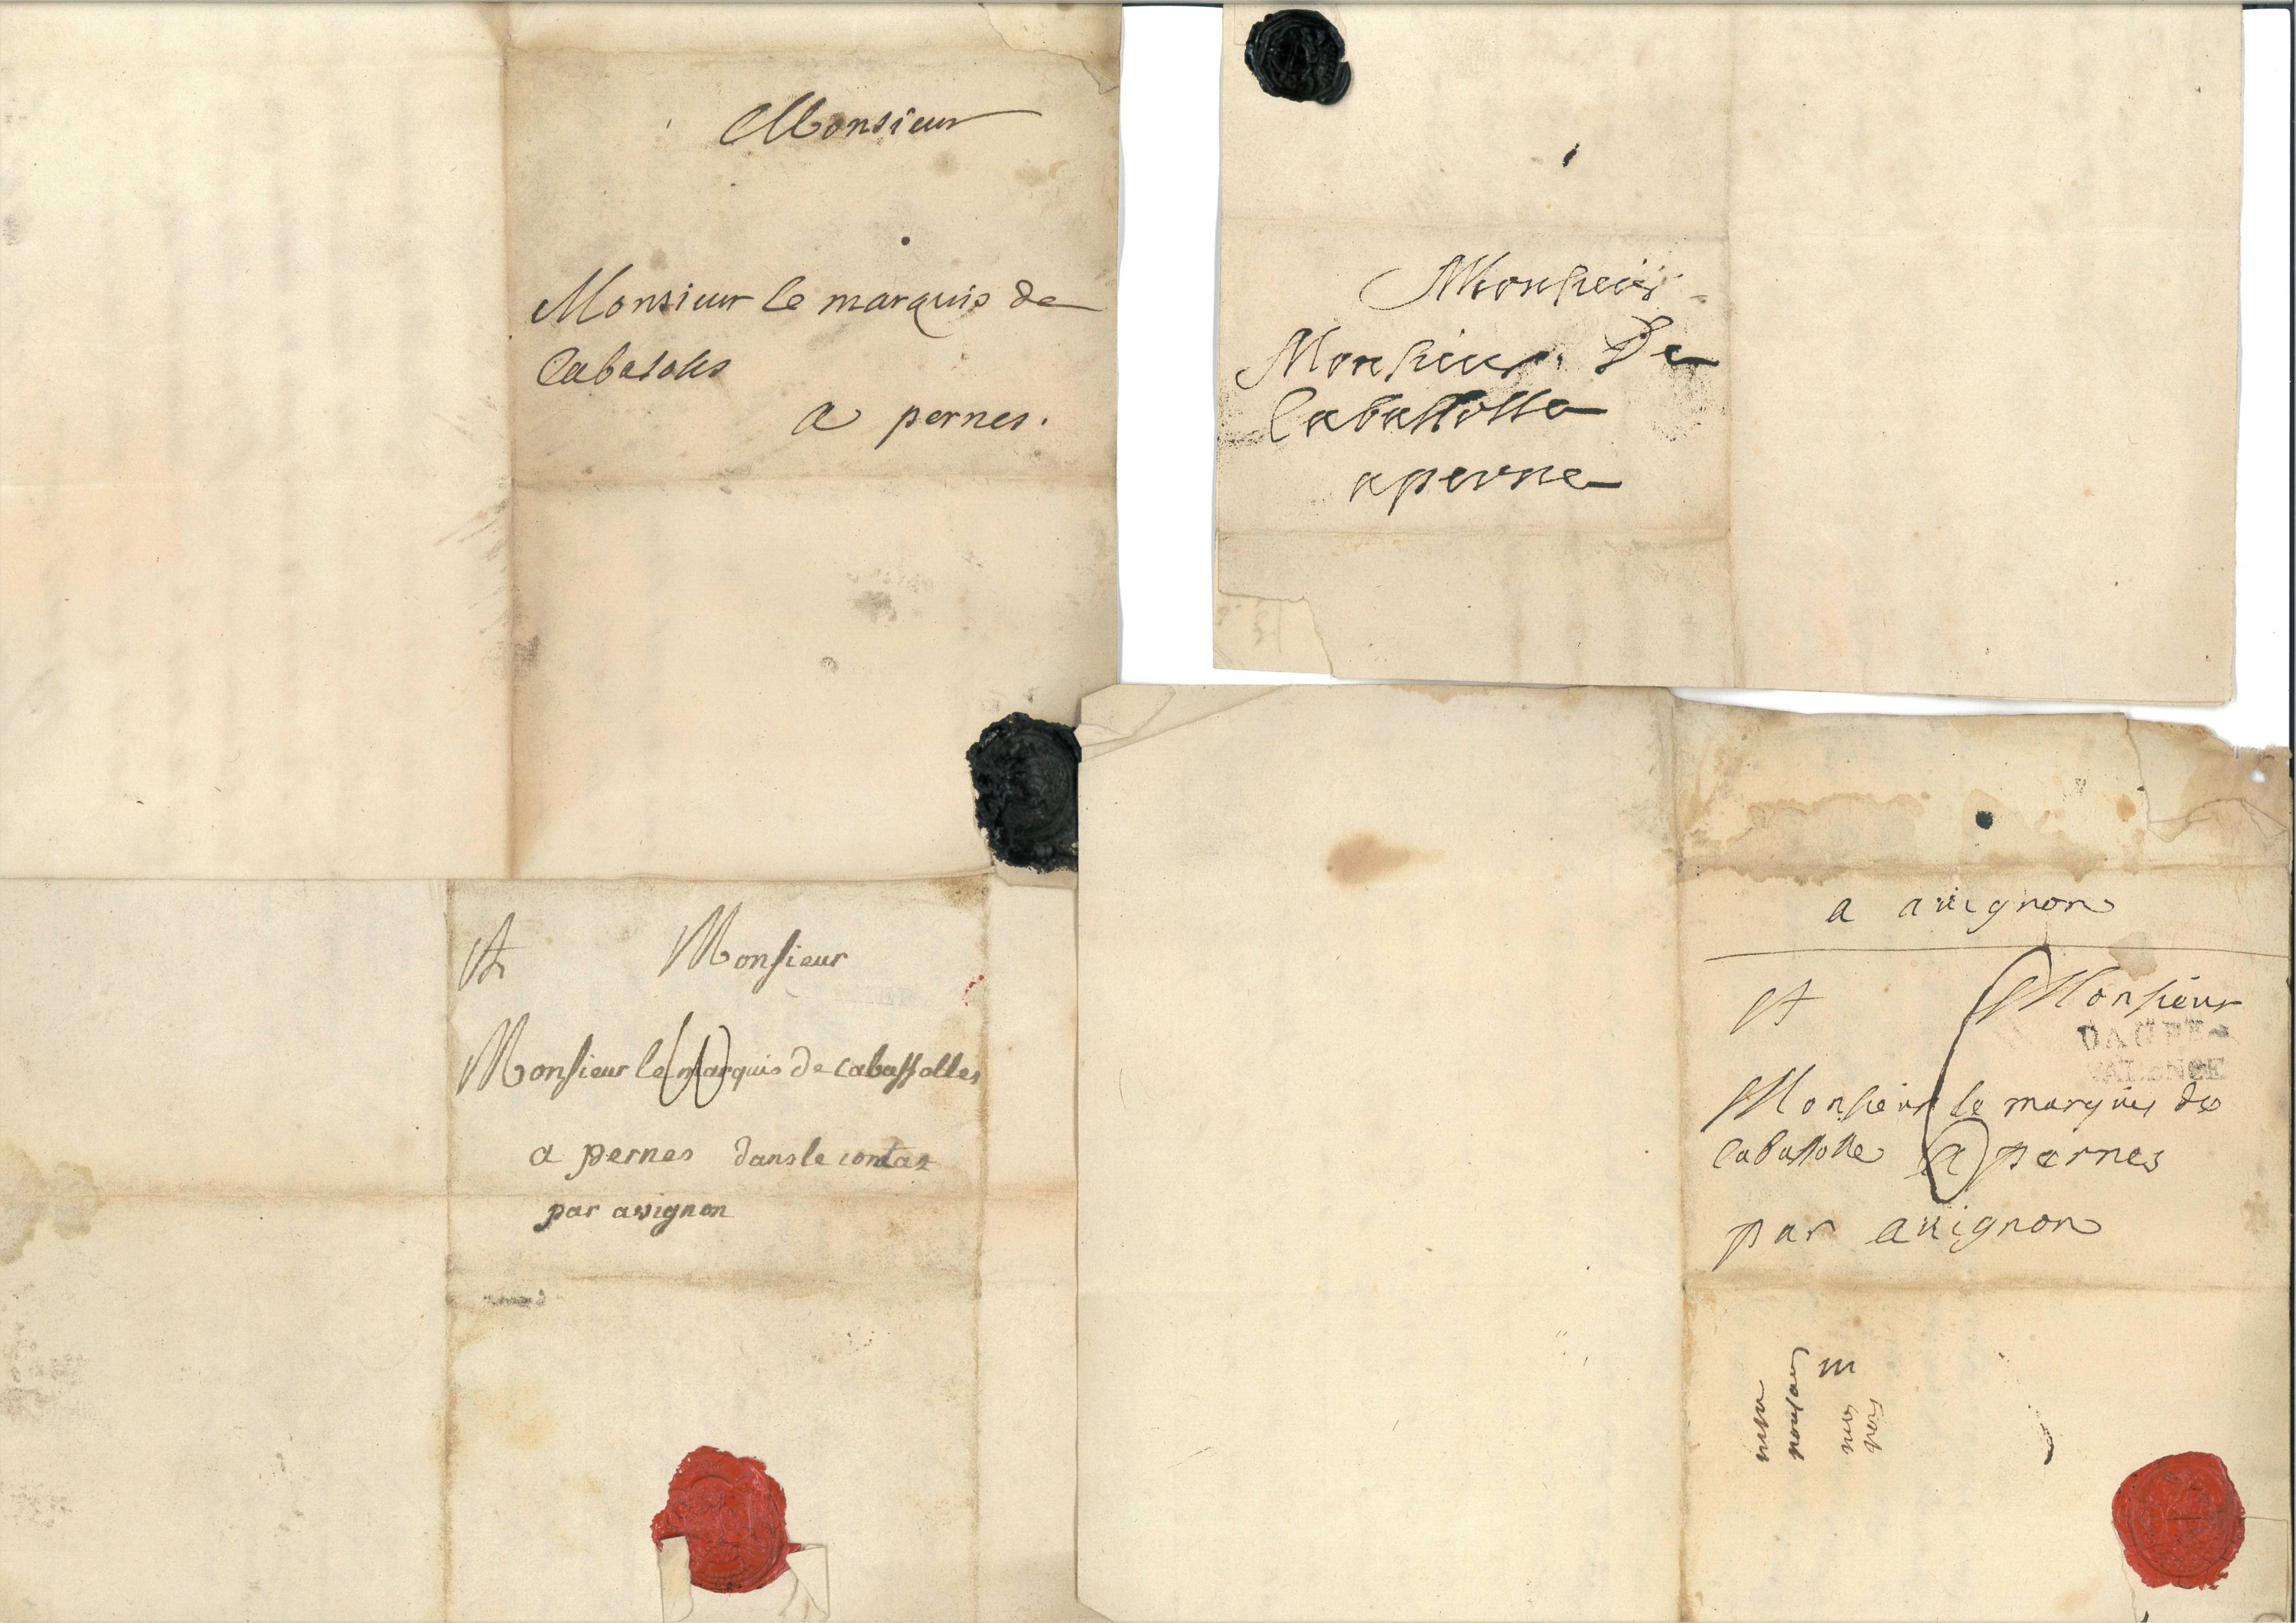 Monsieur
Monsieur le marquis de
Cabasoles
a pernes.
Monsieur
Monsieur De
Cabassolle
a perne
A Monsieur
Monsieur le marquis de cabassolles
a pernes dans le contat
par avignon
a auignon
A Monsieur
VALENCE
Monsieur le marquis de
Cabassolle a pernes
par auignon